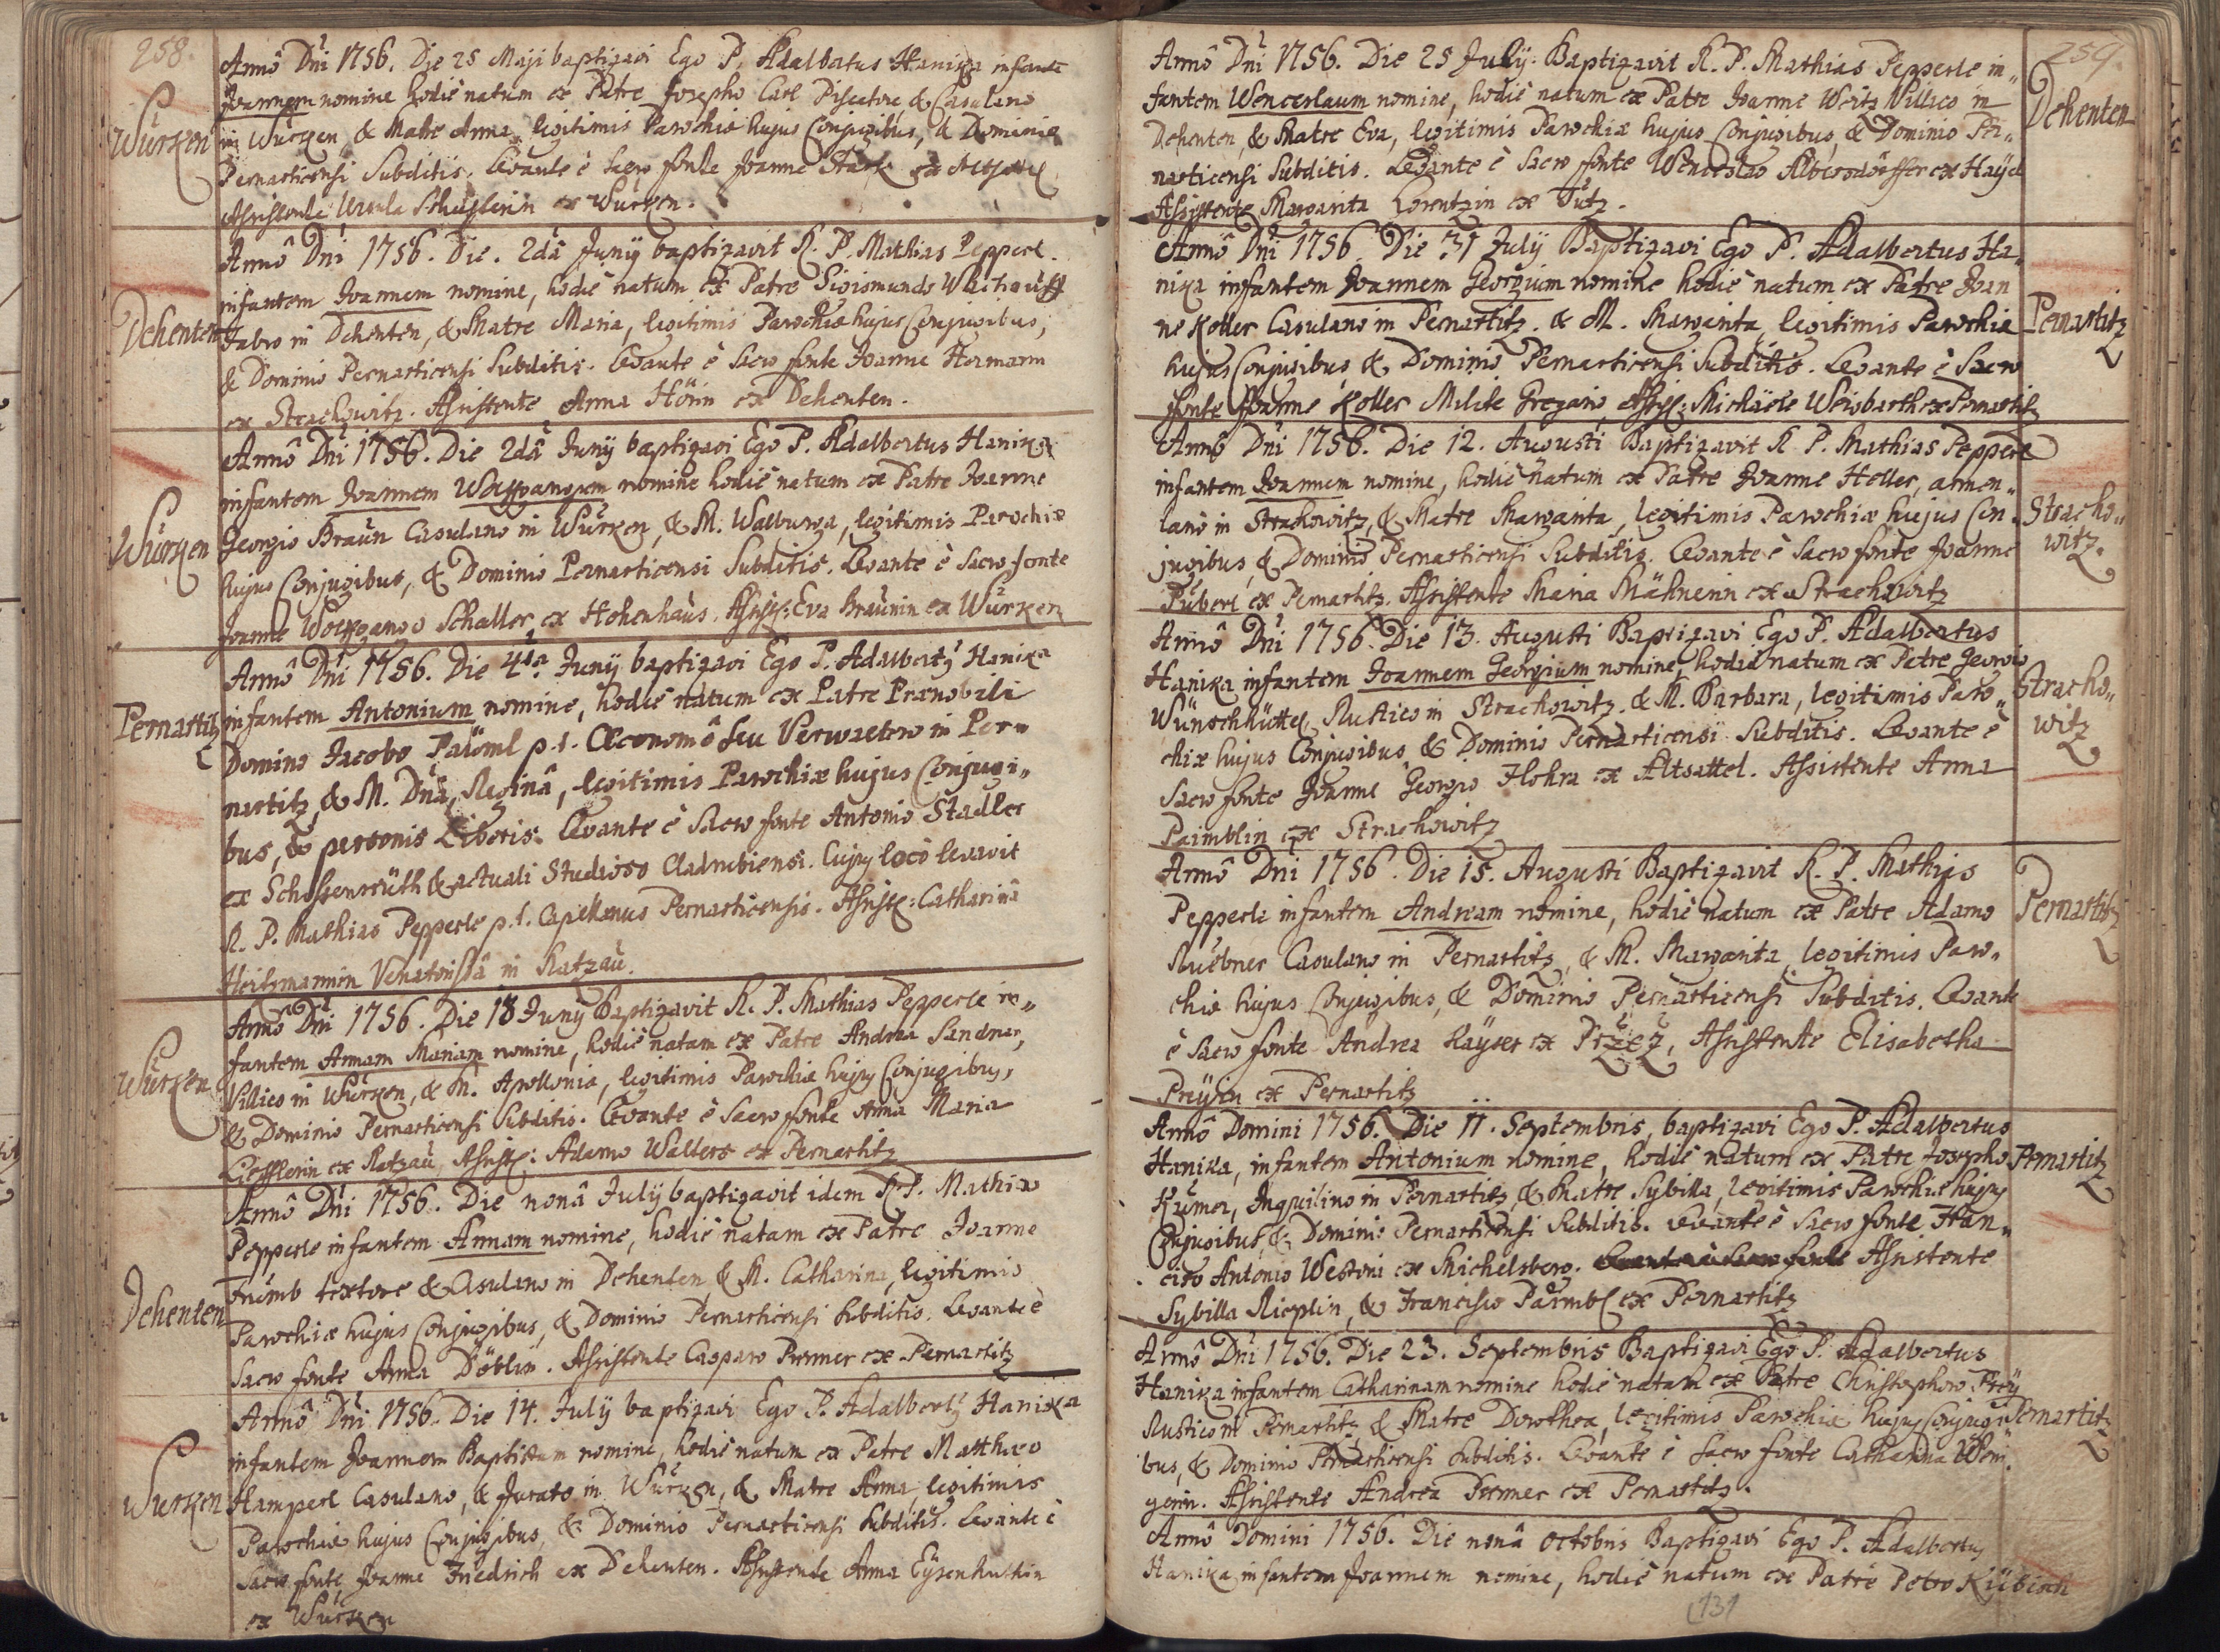 258.
Würken
Anno Dni 1756. Die 25 Maji baptizavi Ego P. Adalbertus Hanika infante
Joannem nomine hodie natum ex Patre Josepho Carl Piscatore, & Casulano
in Würken, & Matre Anna, legitimis Parochiæ hujus Conjugibus, & Dominio
Pernarticensi Subditis. Levante è Sacro fonte Joanne Stark ex
Assistente Ursula Schusterin ex Würken.
Dehenten
Anno Dni 1756. Die. 2dâ Junij baptizavit R. P. Mathias Pepperl.
infantem Joannem nomine, hodie natum ex Patre Sigismundo
Fabro in Dehenten, & Matre Maria, legitimis Parochiæ hujus Conjugibus,
& Dominio Pernarticensi Subditis. Levante è Sacro fonte Joanne Hermann
ex Strachowitz. Assistente Anna Hönin ex Dehenten.
Würken
Anno Dni 1756. Die 2dâ Junij baptizavi Ego P. Adalbertus Hanika
infantem Joannem Wolfgangum nomine hodie natum ex Patre Joanne
Georgio Braun Casulano in Würken, & M. Walburga, legitimis Parochiæ
hujus Conjugibus, & Dominio Pernarticensi Subditis. Levante è Sacro fonte
Joanne Wolfgango Schaller ex Hohenhaus. Assist: Eva Braunin ex Würken
Pernartitz
Anno Dni 1756. Die 4ta Junij baptizavi Ego P. Adalbertg Hanika
infantem Antonium nomine, hodie natum ex Patre Prænobili
Domino Jacobo Päüml p. t. Œconomô seu Verwaltero in Per=
nartitz, & M. Dnâ Reginâ, legitimis Parochiæ hujus Conjugi=
bus, & personis Liberis. Levante è Sacro fonte Antonio Stadler
ex Schossenreüth & actuali Studioso Cladrubiensi. Cujg locô levavit
R. P. Mathias Pepperle p. t. Capellanus Pernarticensis. Assist: Catharinâ
Heilsmannin Venatorissâ in Ratzau.
Würken
Anno Dni 1756. Die 18 Junij Baptizavit R. P. Mathias Pepperle in=
fantem Annam Mariam nomine, hodie natam ex Patre Andrea Sandner,
Villico in Würken, & M. Apollonia, legitimis Parochiæ hujg Conjugibus,
& Dominio Pernarticensi Subditis. Levante è Sacro fonte Anna Maria
Lefflerin ex Ratzau, Assist: Adamo Walters ex Pernartitz
Dehenten
Anno Dni 1756. Die nonâ Julij baptizavit idem R. P. Mathias
Pepperle infantem Annam nomine, hodie natam ex Patre Joanne
Frümb textore & Casulano in Dehenten, & M. Catharina, legitimis
Parochiæ hujus Conjugibus, & Dominio Pernarticensi Subditis. Levante è
Sacro fonte Anna Döblin. Assistente Casparo Prumer ex Pernartitz
Würken
Anno Dni 1756. Die 14. Julij baptizavi Ego P. Adalbertg Hanika
infantem Joannem Baptistam nomine, hodie natum ex Patre Matthæo
Hamperl Casulano, & Jurato in Würken, & Matre Anna, legitimis
Parochiæ hujus Conjugibus, & Dominio Pernarticensi Subditis. Levante è
Sacro fonte Joanne Friedrich ex Dehenten. Assistente Anna Eysenhutkin
ex Würken
259.
Dehenten
Anno Dni 1756. Die 25 Julij. Baptizavit R. P. Mathias Pepperle in=
fantem Wenceslaum nomine, hodie natum ex Patre Joanne Weitz Villico in
Dehenten, & Matre Eva, legitimis Parochiæ hujus Conjugibus, & Dominio Per=
narticensi Subditis. Levante è Sacro fonte Wenceslao Albersdörffer ex Hayd
Assistente Margarita Lorentzin ex Tutz.
Pernartitz
Anno Dni 1756. Die 31 Julij Baptizavi Ego P. Adalbertus Ha=
nika infantem Joannem Georgium nomine hodie natum ex Patre Joan
ne Koller Casulano in Pernartitz. & M. Margarita, legitimis Parochiæ
hujus Conjugibus & Dominio Pernarticensi Subditis. Levante è Sacro
fonte Joanne Koller Milite Gregario, Assist: Michaele Weisbarth ex Pernartitz
Stracho=
witz.
Anno Dni 1756. Die 12. Augusti Baptizavit R. P. Mathias Pepperle
infantem Joannem nomine, hodie natum ex Patre Joanne Heller, armen=
tario in Strachowitz, & Matre Margarita, legitimis Parochiæ hujus Con=
jugibus, & Dominio Pernarticensi Subditis. Levante è Sacro fonte Joanne
Püberl ex Pernartitz. Assistente Maria Mähnerin ex Strachowitz
Stracho=
witz
Anno Dni 1756. Die 13. Augusti Baptizavi Ego P. Adalbertus
Hanika infantem Joannem Georgium nomine, hodie natum ex Patre Georgio
Wünschhüttel Rustico in Strachowitz. & M. Barbara, legitimis Paro=
chiæ hujus Conjugibus & Dominio Pernarticensi Subditis. Levante è
Sacro fonte Joanne Georgio Flohra ex Altsattel. Assistente Anna
Paimblin ex Strachowitz
Pernartitz
Anno Dni 1756. Die 15. Augusti Baptizavit R. P. Mathias
Pepperle infantem Andream nomine, hodie natum ex Patre Adamo
Kuebner Casulano in Pernartitz, & M. Margarita, legitimis Paro=
chiæ hujus Conjugibus, & Dominio Pernarticensi Subditis. Levante
è Sacro fonte Andrea Kayser ex Przez, Assistente Elisabetha
Preysin ex Pernartitz
Pernartitz
Anno Domini 1756. Die 11. Septembris, baptizavi Ego P. Adalbertus
Hanika, infantem Antonium nomine, hodie natum ex Patre Josepho
Krumer, Inquilino in Pernartitz, & Matre Sybilla, legitimis Parochiæ hujg
Conjugibus, & Dominio Pernarticensi Subditis. Levante è Sacro fonte Fran=
cisco Antonio Westoni ex Michelsberg. Assistente
Sybilla Rieplin, & Francisco Parmbl ex Pernartitz
Pernartitz
Anno Dni 1756. Die 23. Septembris Baptizavi Ego P. Adalbertus
Hanika infantem Catharinam nomine hodie natam ex Patre Christophoro Frey
Rustico in Pernartitz & Matre Dorothea, legitimis Parochiæ hujg Conjugi=
bus, & Dominio Pernarticensi Subditis. Levante è Sacro fonte Catharina Wein=
gerin. Assistente Andrea Prumer ex Pernartitz.
Anno Domini 1756. Die nonâ Octobris Baptizavi Ego P. Adalbertus
Hanika, infantem Joannem nomine, hodie natum ex Patre Petro Kübisch
131